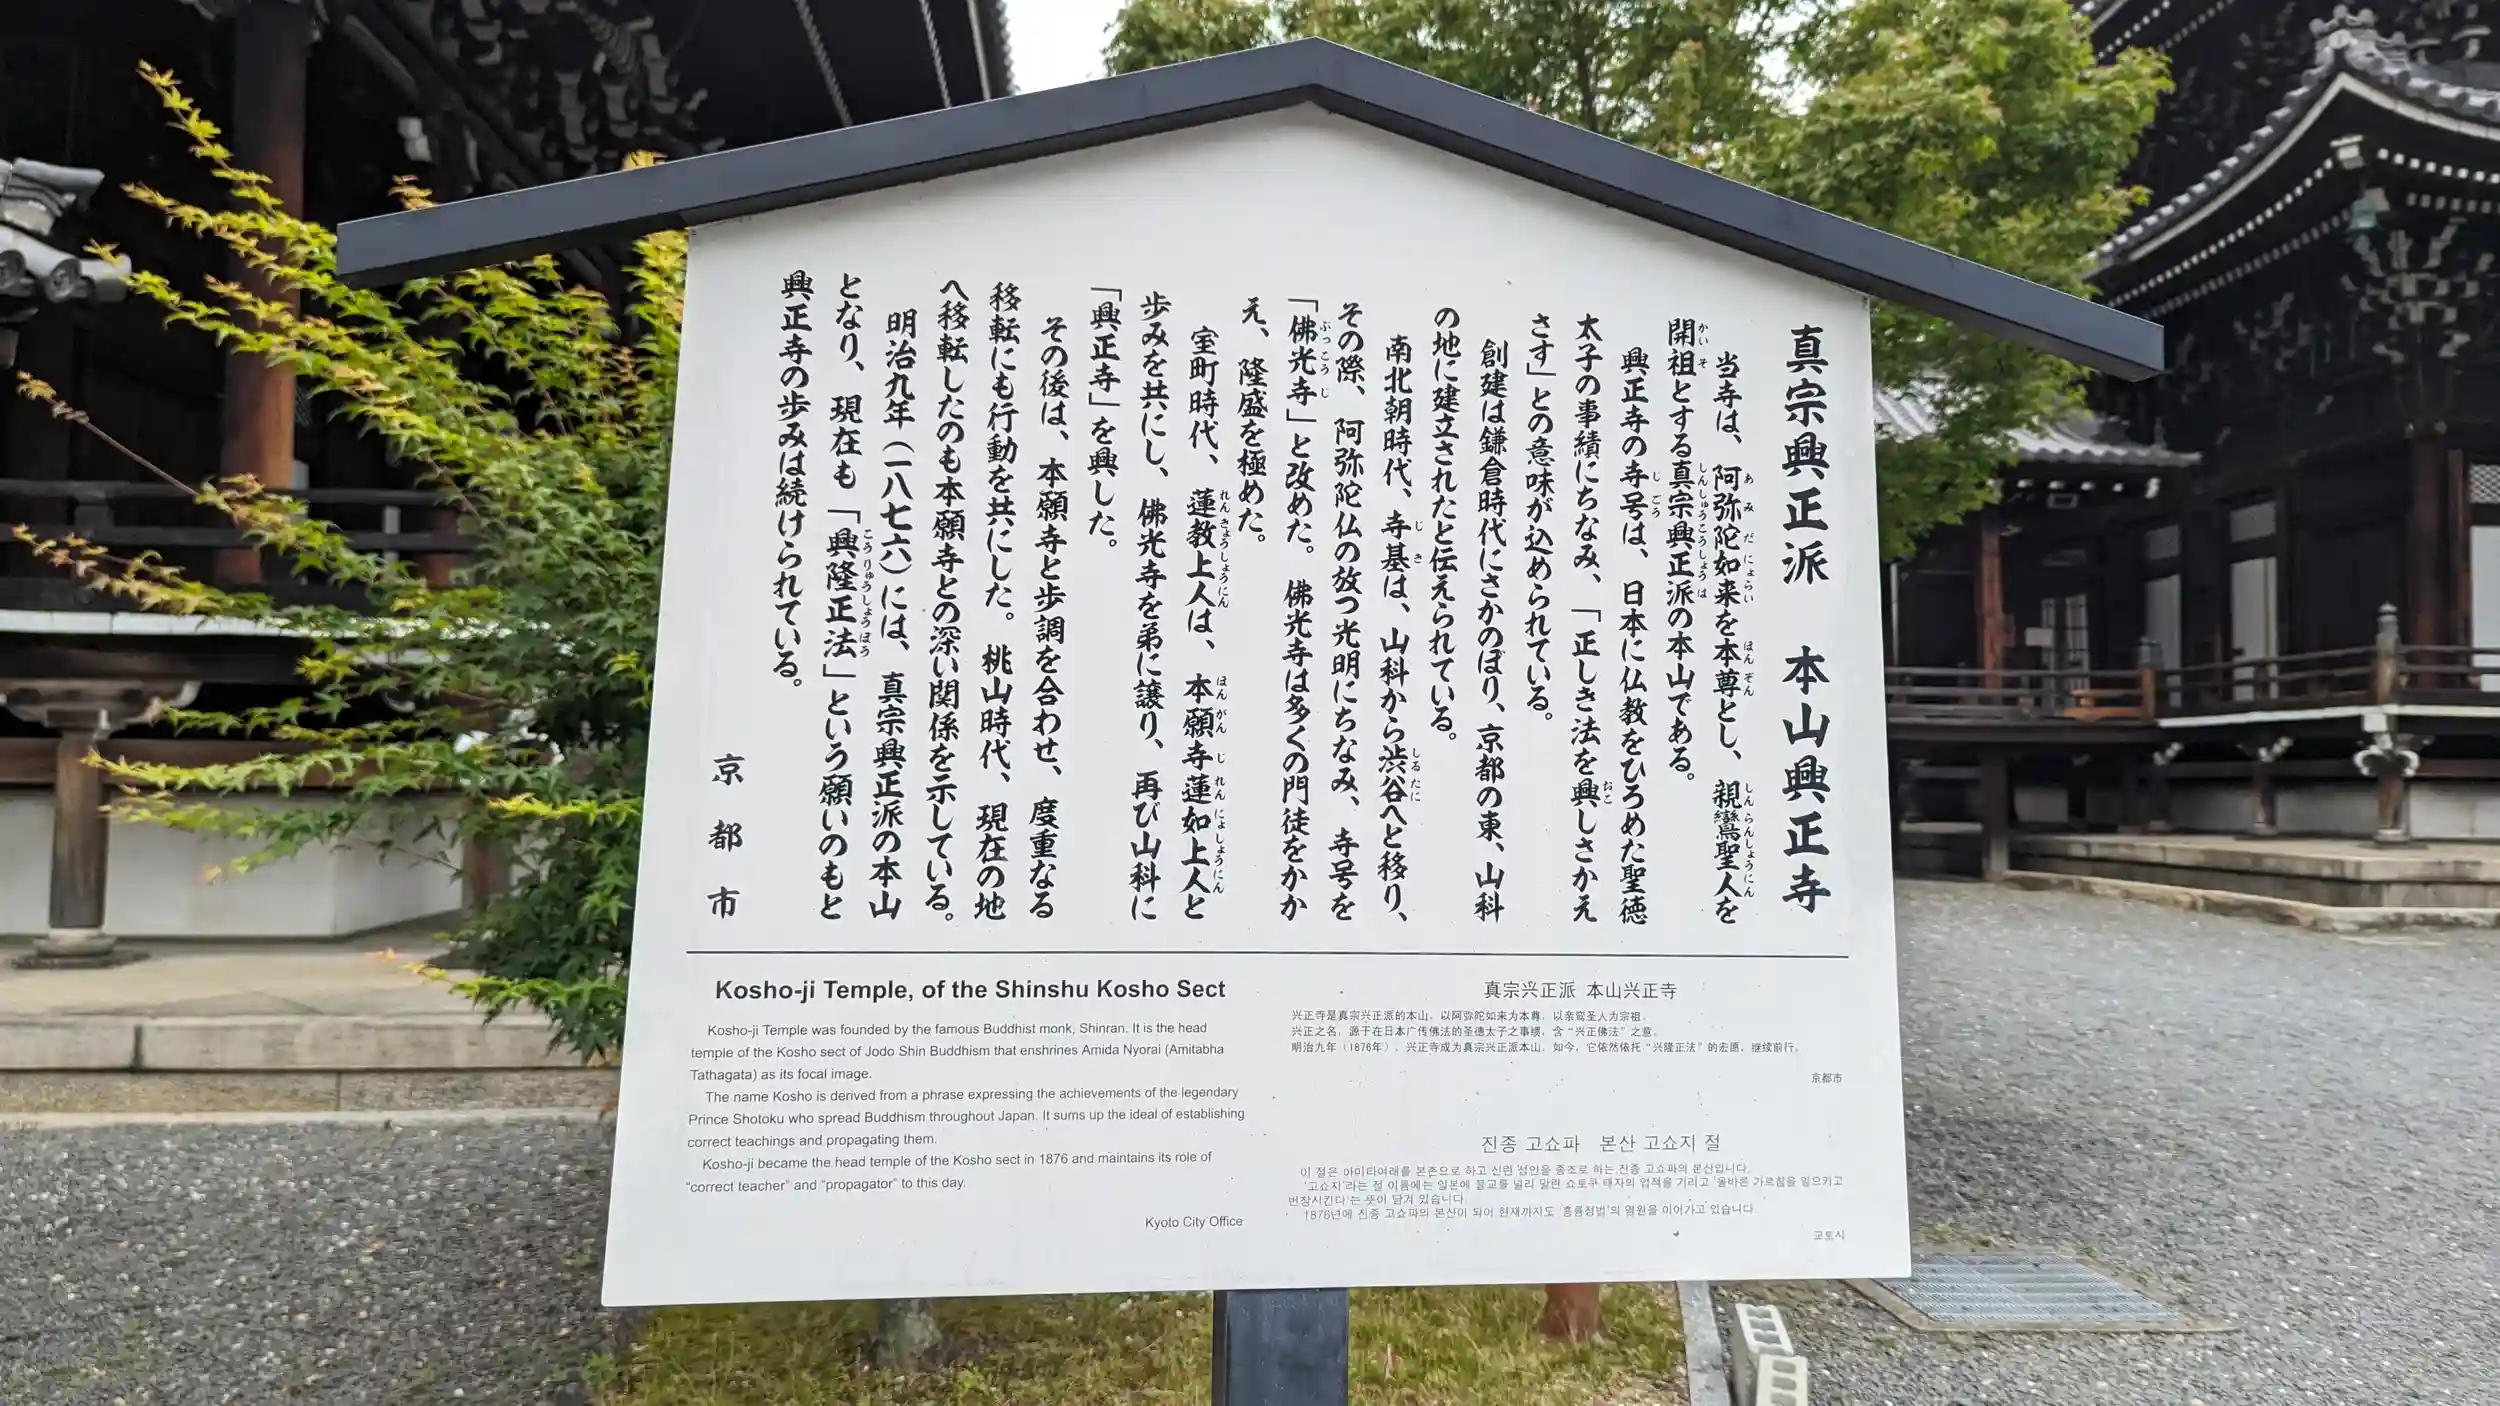 真宗興正派　本山興正寺
当寺は、阿弥陀如来を本尊とし、親鸞聖人を
開祖とする真宗興正派の本山である。
興正寺の寺号は、日本に仏教をひろめた聖徳
太子の事績にちなみ、「正しき法を興しさかえ
さす」との意味が込められている。
創建は鎌倉時代にさかのぼり、京都の東、山科
の地に建立されたと伝えられている。
南北朝時代、寺基は、山科から渋谷へと移り、
その際、阿弥陀仏の放つ光明にちなみ、寺号を
「佛光寺」と改めた。佛光寺は多くの門徒をかか
え、隆盛を極めた。
室町時代、蓮教上人は、本願寺蓮如上人と
歩みを共にし、佛光寺を弟に譲り、再び山科に
「興正寺」を興した。
その後は、本願寺と歩調を合わせ、度重なる
移転にも行動を共にした。桃山時代、現在の地
へ移転したのも本願寺との深い関係を示している。
明治九年（一八七六）には、真宗興正派の本山
となり、現在も「興隆正法」という願いのもと
興正寺の歩みは続けられている。
京都市
Kosho-ji Temple, of the Shinshu Kosho Sect
Kosho-ji Temple was founded by the famous Buddhist monk, Shinran. It is the head
temple of the Kosho sect of Jodo Shin Buddhism that enshrines Amida Nyorai (Amitabha
Tathagata) as its focal image.
The name Kosho is derived from a phrase expressing the achievements of the legendary
Prince Shotoku who spread Buddhism throughout Japan. It sums up the ideal of establishing
correct teachings and propagating them.
Kosho-ji became the head temple of the Kosho sect in 1876 and maintains its role of
"correct teacher" and "propagator" to this day.
Kyoto City Office
真宗兴正派 本山兴正寺
兴正寺是真宗兴正派的本山，以阿弥陀如来为本尊，以亲鸾圣人为宗祖。
兴正之名，源于在日本广传佛法的圣德太子之事绩，含“兴正佛法”之意。
明治九年（1876年），兴正寺成为真宗兴正派本山，如今，它依然依托“兴隆正法”的宏愿，继续前行。
京都市
진종 고쇼파　본산 고쇼지 절
이 절은 아미타여래를 본존으로 하고 신란 성인을 종조로 하는 진종 고쇼파의 본산입니다.
'고쇼지'라는 절 이름에는 일본에 불교를 널리 알린 쇼토쿠 태자의 업적을 기리고 '올바른 가르침을 일으키고
번창시킨다'는 뜻이 담겨 있습니다.
1876년에 진종 고쇼파의 본산이 되어 현재까지도 '흥륭정법'의 염원을 이어가고 있습니다.
교토시